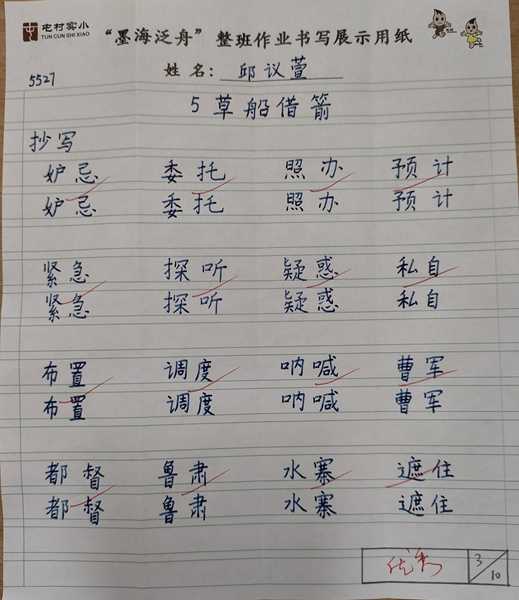 屯村实小
TUN CUN SHI XIAO
“墨海泛舟”整班作业书写展示用纸
5527
姓名：邱议萱
5 草船借箭
抄写
妒忌 委托 照办 预计
妒忌 委托 照办 预计
紧急 探听 疑惑 私自
紧急 探听 疑惑 私自
布置 调度 呐喊 曹军
布置 调度 呐喊 曹军
都督 鲁肃 水寨 遮住
都督 鲁肃 水寨 遮住
优秀 3/10